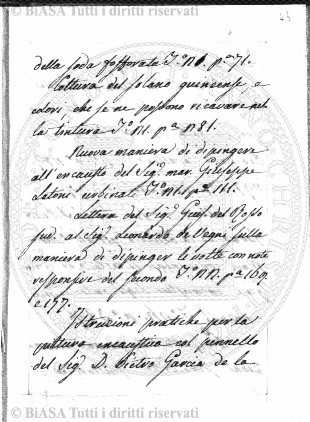 © BiASA Tutti i diritti riservati
della soda fosforata T.° N6. p.ª 71.
Coltura del solano quineense, e
colori che se ne possono ricavare nel
la tintura T.° N1. p.ª N81.
Nuova maniera di dipingere
all'encausto del Sig.ʳ mar. Giuseppe
Urbinate p.ª 161.
Lettera del Sig.ʳ Gius. del Rosso
al Sig.ʳ Leonardo de Vegni sulla
maniera di dipinger le volte con note
responsive del secondo T.° p.ª 169
e 177.
Istruzione pratiche per la
pittura encaustica col pennello
del Sig.ʳ D. Pietro Garcia de la
© BiASA Tutti i diritti riservati